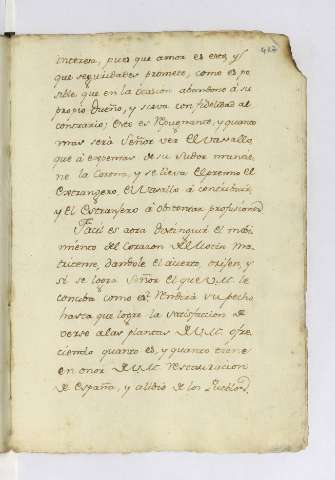 interesa, pues que amor es este, y
que seguridades promete, como es po
sible que en la ocasion abandone à su
propio Dueño, y sirva con fidelidad al
contrario; esto es repugnante, y quanto
mas será Señor ver el Vasallo
que à expensas de su sudor mantie
ne la Corona, y se lleva el premio el
Extrangero, el Vasallo à contribuir,
y el Estranjero à obstentar profusiones
Facil es aora distinguir el movi
miento del Corazon del
dandole el acierto, origen, y
si se logra Señor el que V.M. le
conciba como es, vendrá su pecho
hasta que logre la satisfaccion de
verse a las plantas de V.M. ofre
ciendo quanto es, y quanto tiene
en onor de V.M. restauracion
de España, y alibio de los Pueblos